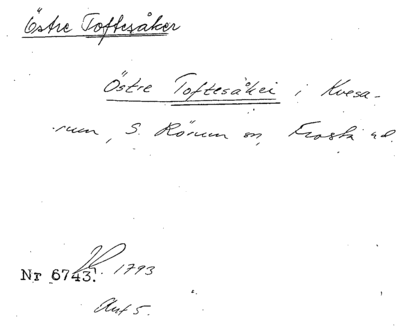 Östre Toftesåker
Östre Toftesåker i Kvesa-
rum, S. Rörum sn, Frosta hd.
Nr 6743. 1793
Akt 5.